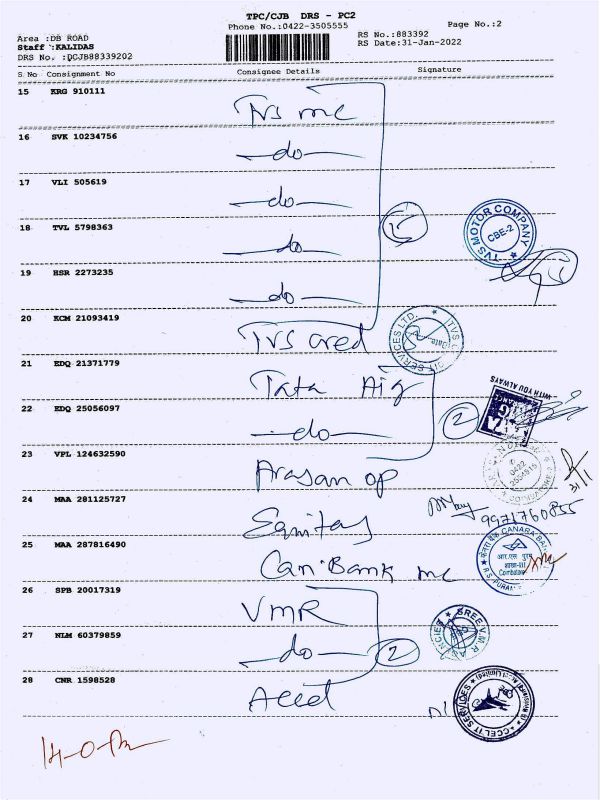 TPC/CJB DRS - PC2
Phone No.:0422-3505555
Page No.:2
Area :DB ROAD
Staff :KALIDAS
DRS No. :DCJB88339202
RS No.:883392
RS Date:31-Jan-2022
S.No Consignment No Consignee Details Signature
15 KRG 910111 TVS mc
16 SVK 10234756 -do-
17 VLI 505619 -do-
18 TVL 5798363 -do-
19 HSR 2273235 -do-
20 KCM 21093419 TVS cred
21 EDQ 21371779 Tata Aig
22 EDQ 25056097 -do-
23 VPL 124632590 Arasan op
24 MAA 281125727 Sanitas
25 MAA 287816490 Can Bank mc
26 SPB 20017319 VMR
27 NLM 60379859 -do-
28 CNR 1598528 Accel
TVS MOTOR COMPANY
CBE-2
WITH YOU ALWAYS
2
31/1
9971760855
CANARA BANK
2